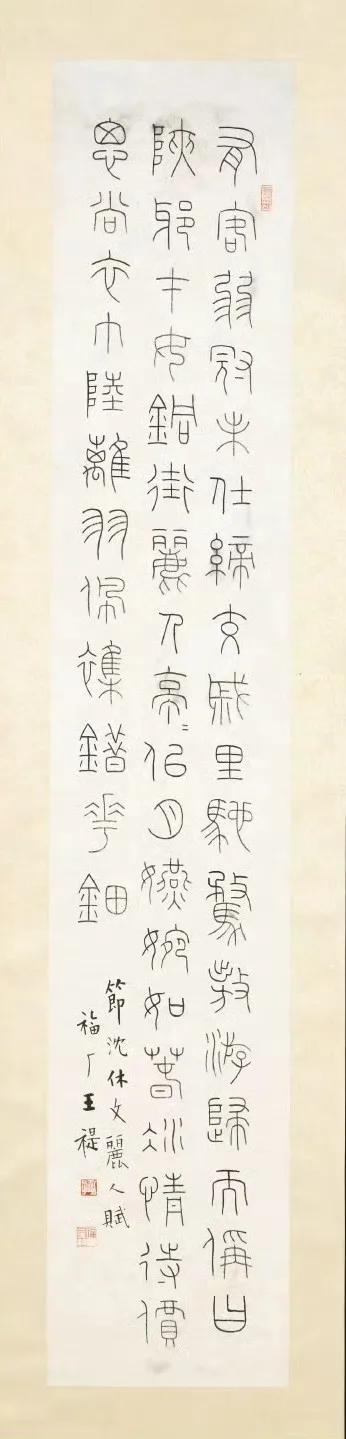 有客弱冠未仕締交戚里馳騖敖游歸而偁曰
陜邪才女銅街麗人亭〻佀月嬿婉如萅冰情待價
思尚衣巾陸離羽佩襍錯華鈿
節沈休文麗人賦
福厂王禔